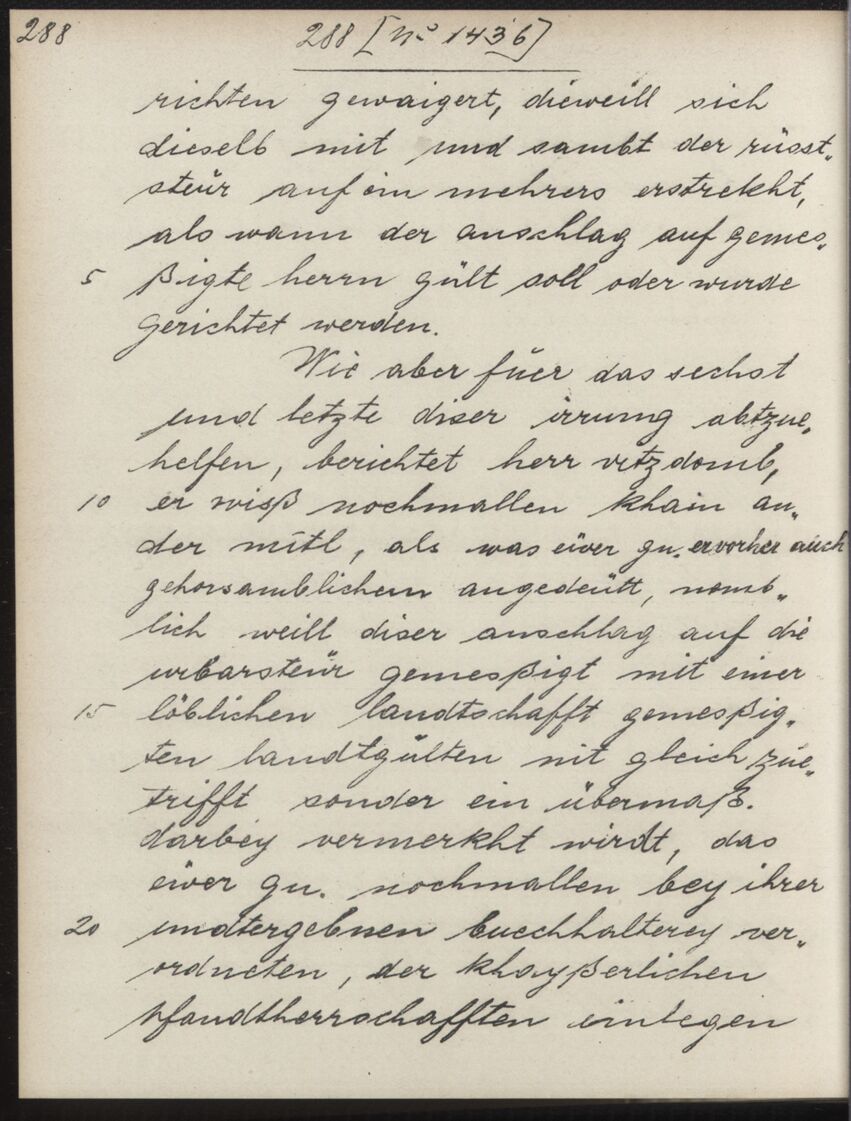 288 288 [No 1436]
richten gewaigert, dieweill sich
dieselb mit und sambt der rüsst„
steür auf ein mehrers erstrekht,
als wann der anschlag auf gemes„
5 ßigte herrn gült soll oder wurde
gerichtet werden.
Wie aber füer das sechst
und letzte diser irrung abtzue„
helfen, berichtet herr vitzdomb,
10 er wisß nochmallen khain an„
der mitl, als was eüer gn. er vorher auch
gehorsamblichem angedeütt, nemb„
lich weill diser anschlag auf die
urbarsteür gemesßigt mit einer
15 löblichen landtschafft gemesßig„
ten landtgülten nit gleich zue„
trifft sonder ein übermaß.
darbey vermerkht wirdt, das
eüer gn. nochmallen bey ihrer
20 undtergebnen buechhalterey ver„
ordneten, der khayßerlichen
pfandtherrschafften einlegen